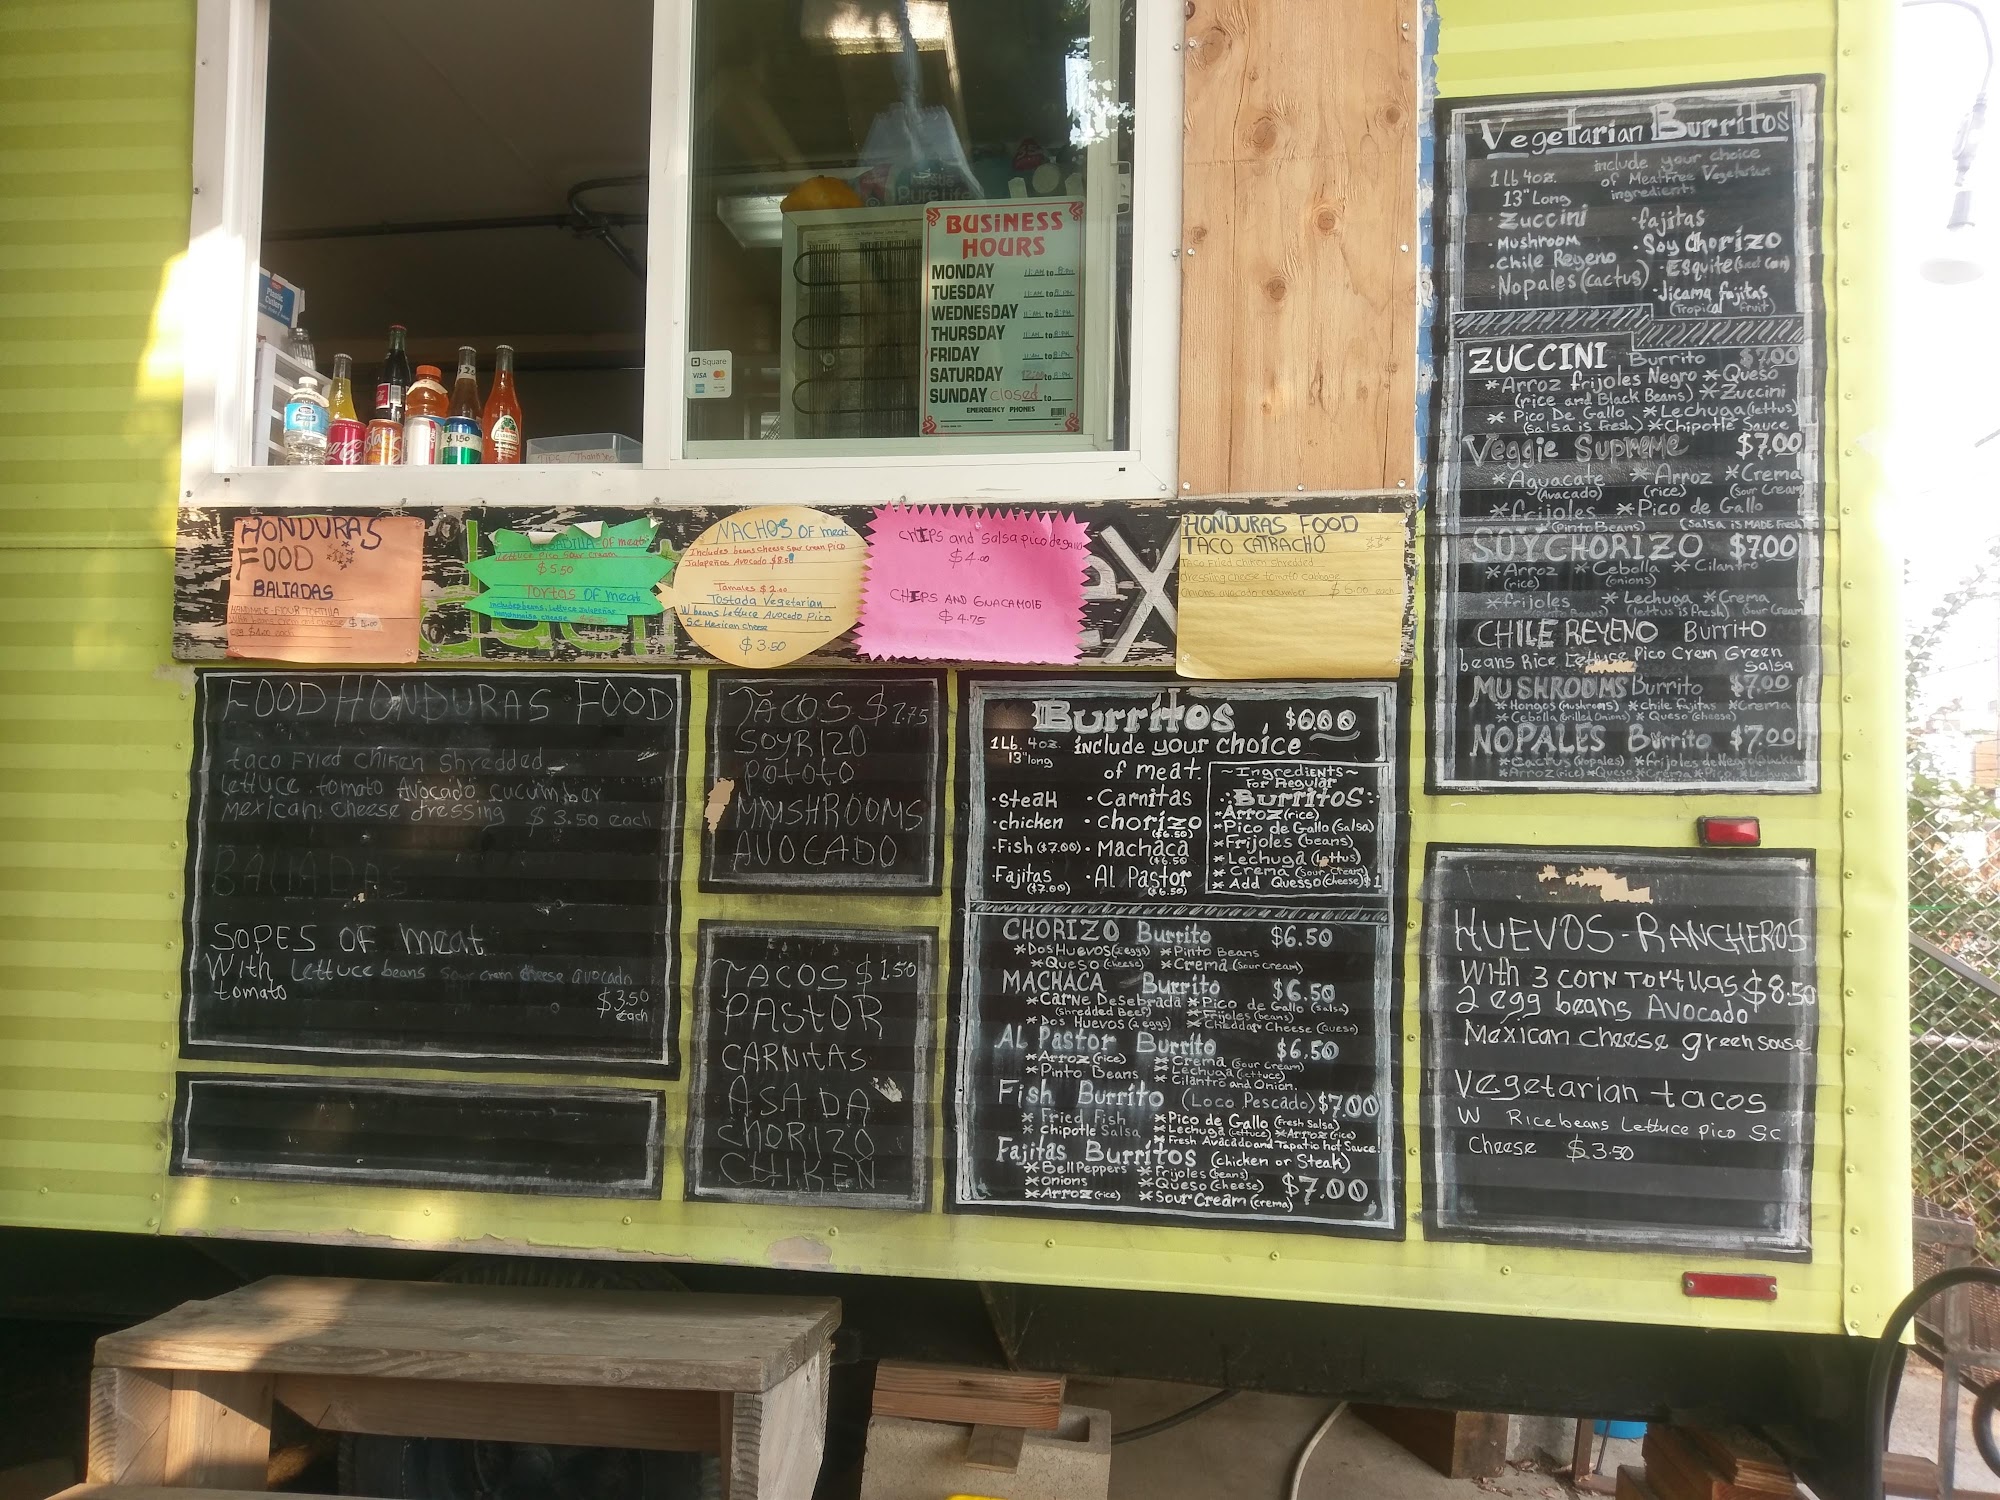 BUSINESS
HOURS
MONDAY 11:AM to 8:PM
TUESDAY 11:AM to 8:PM
WEDNESDAY 11:AM to 8:PM
THURSDAY 11:AM to 8:PM
FRIDAY 11:AM to 8:PM
SATURDAY to 8:PM
SUNDAY closed to
EMERGENCY PHONES
Square
VISA
Plastic
Cutlery
$1.50
TIPS
HONDURAS
FOOD
BALIADAS
HANDMADE FLOUR TORTILLA
OF meat
Lettuce Pico Sour Cream
$5.50
TORTAS OF meat
includes beans, lettuce Jalapeñas
mayonnaise, cheese
NACHOS OF meat
Includes beans cheese sour cream pico
Jalapeños Avocado $8.50
Tamales $2.00
Tostada Vegetarian
W beans Lettuce Avocado Pico
SC Mexican Cheese
$3.50
CHIPS and Salsa pico de gallo
$4.00
CHIPS AND GUACAMOLE
$4.75
HONDURAS FOOD
TACO CATRACHO
Taco Filled chikin shredded
dressing cheese tomato cabbage
Onions avocado cucumber $6.00 each
FOOD HONDURAS FOOD
taco Fried chiken Shredded
lettuce. tomato Avocado cucumber
Mexican: cheese dressing $3.50 each
BALIADAS
SOPES OF meat
With Lettuce beans sour cream cheese avocado
tomato
$3.50
each
TACOS $1.75
SOYRIZO
POTOTO
MMSHROOMS
AVOCADO
TACOS $1.50
PASTOR
CARNITAS
ASADA
CHORIZO
CHIKEN
Burritos $6.00
1Lb. 4oz. include your choice
13"long of meat.
•Steak •Carnitas
•chicken •chorizo ($6.50)
•Fish ($7.00) •Machaca ($6.50)
•Fajitas ($7.00) •Al Pastor ($6.50)
~Ingredients~
For Regular
Burritos
*Arroz (rice)
*Pico de Gallo (salsa)
*Frijoles (beans)
*Lechuga (Lettus)
*Crema (Sour Cream)
*Add Quesso (cheese) $1
CHORIZO Burrito $6.50
*Dos Huevos (2 eggs) *Pinto Beans
*Queso (cheese) *Crema (sour cream)
MACHACA Burrito $6.50
*Carne Desebrada *Pico de Gallo (salsa)
(Shredded Beef) *Frijoles (beans)
*Dos Huevos (2 eggs) *Cheddar Cheese (Queso)
AL Pastor Burrito $6.50
*Arroz (rice) *Crema (Sour Cream)
*Pinto Beans *Lechuga (Lettuce)
*Cilantro and Onion.
Fish Burrito (Loco Pescado) $7.00
*Fried Fish *Pico de Gallo (Fresh Salsa)
*Chipotle Salsa *Lechuga (Lettuce) *Arroz (rice)
*Fresh Avacado and Tapatio hot Sauce.
Fajitas Burritos (chicken or Steak)
*Bell Peppers *Frijoles (beans)
*Onions *Queso (cheese) $7.00
*Arroz (rice) *Sour Cream (crema)
Vegetarian Burritos
include your choice
1Lb 4oz. of Meatfree Vegetarian
13"Long ingredients
•Zuccini •fajitas
•Mushroom •Soy Chorizo
•Chile Reyeno •Esquite (Sweet Corn)
•Nopales (cactus) •Jicama fajitas
(Tropical Fruit)
ZUCCINI Burrito $7.00
*Arroz frijoles Negro *Queso
(rice and Black Beans) *Zuccini
*Pico De Gallo *Lechuga (lettus)
(salsa is Fresh) *Chipotle Sauce
Veggie Supreme $7.00
*Aguacate *Arroz *Crema
(Avacado) (rice) (Sour Cream
*frijoles *Pico de Gallo
(Pinto Beans) (salsa is MADE Fresh)
SOYCHORIZO $7.00
*Arroz *Cebolla *Cilantro
(rice) (onions)
*frijoles *Lechuga *Crema
(lettus is Fresh) (Sour Cream
CHILE REYENO Burrito
beans Rice Lettuce Pico Crem Green
Salsa
MUSHROOMS Burrito $7.00
*Hongos (Mushrooms) *chile Fajitas *Crema
*Cebolla (Grilled Onions) *Queso (cheese)
NOPALES Burrito $7.00
*Cactus (Nopales) *Frijoles de Negro
*Arroz (rice) *Queso *Crema *Pico
HUEVOS-RANCHEROS
With 3 corn TORTILLAS $8.50
2 egg beans Avocado
Mexican cheese green souse
Vegetarian tacos
W Rice beans Lettuce pico SC
Cheese $3.50